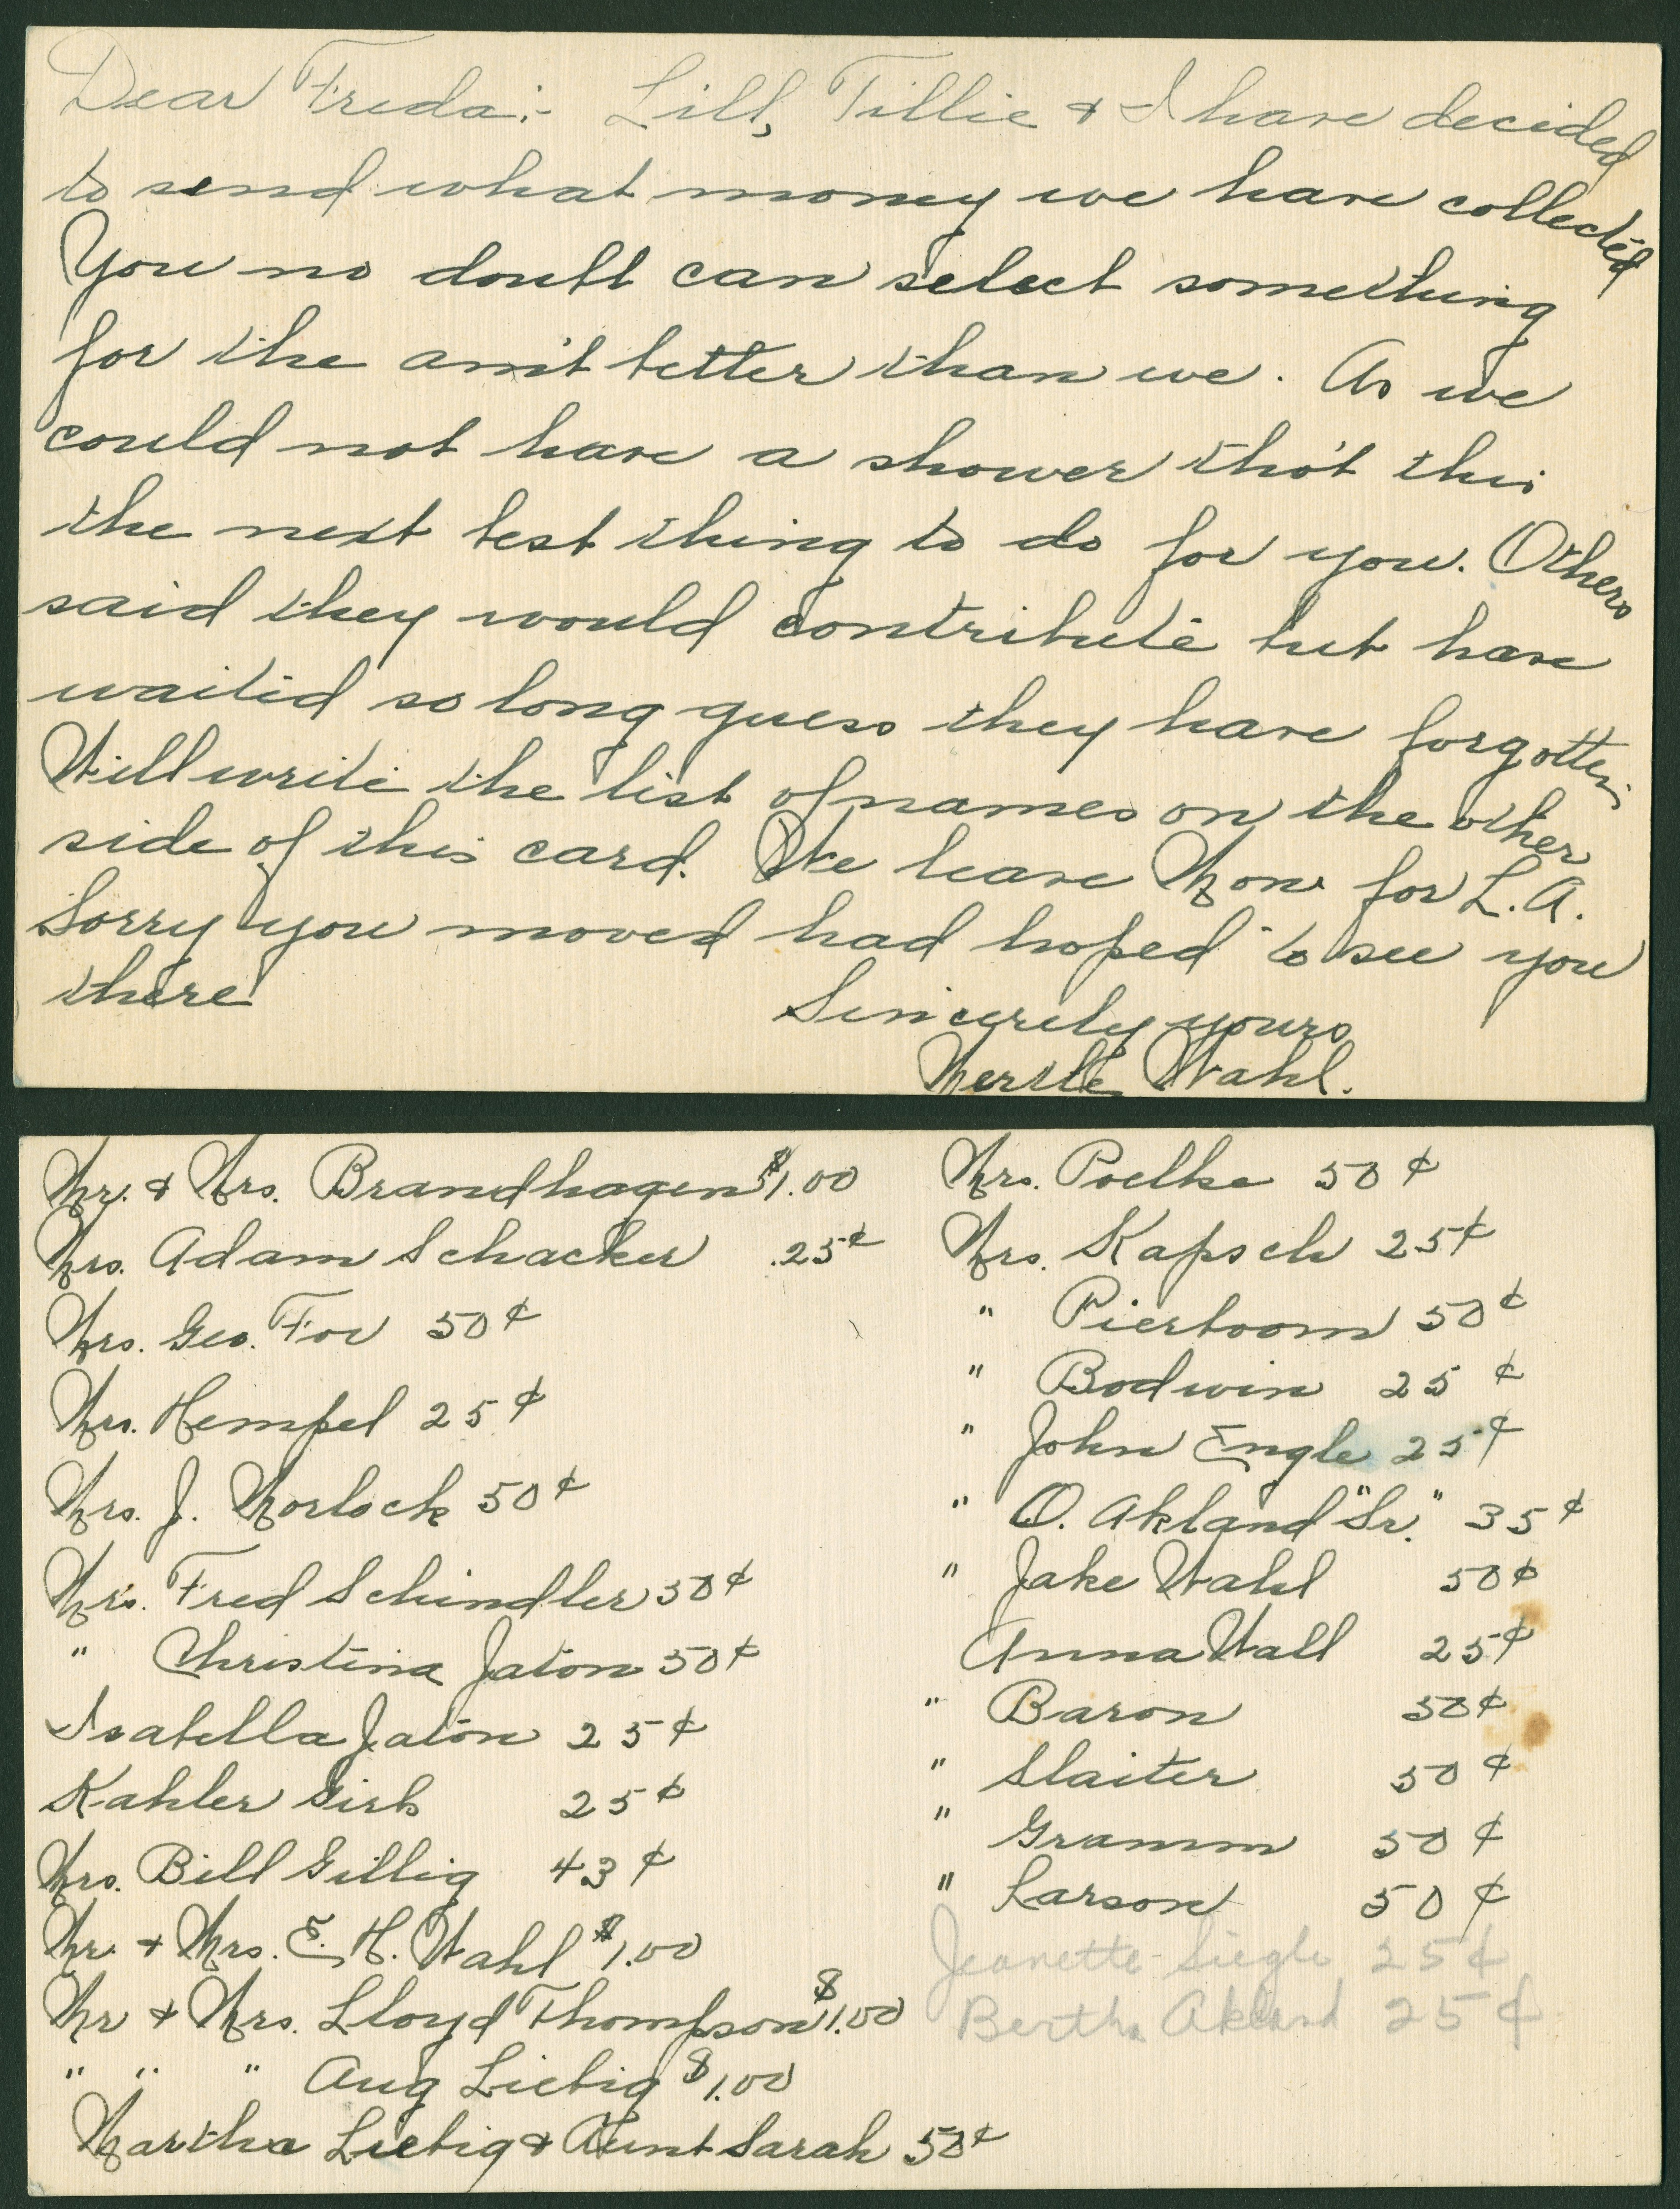 Dear Freda:- Lill, Tillie & I have decided
to send what money we have collected
You no doubt can select something
for the am't better than we. As we
could not have a shower tho't this
the next best thing to do for you. Others
said they would contribute but have
waited so long guess they have forgotten
Will write the list of names on the other
side of this card. We leave Mon. for L.A.
Sorry you moved had hoped to see you
there
Sincerely yours
Mertle Wahl.
Mr. & Mrs. Brandhagen $1.00
Mrs. Adam Schacker .25¢
Mrs. Geo. Fox 50¢
Mrs. Hempel 25¢
Mrs. J. Morlock 50¢
Mrs. Fred Schindler 50¢
" Christina Jaton 50¢
Isabella Jaton 25¢
Kahler Girls 25¢
Mrs. Bill Gillig 43¢
Mr. & Mrs. E. H. Wahl $1.00
Mr & Mrs. Lloyd Thompson $1.00
" " " Aug Liebig $1.00
Martha Liebig & Aunt Sarah 50¢
Mrs. Poelke 50¢
Mrs. Kapsch 25¢
" Pierboom 50¢
" Bodwin 25¢
" John Engle 25¢
" O. Akland "Sr." 35¢
" Jake Wahl 50¢
Anna Wall 25¢
" Baron 50¢
" Slaiter 50¢
" Gramm 50¢
" Larson 50¢
Jeanette Siegle 25¢
Bertha Akland 25¢